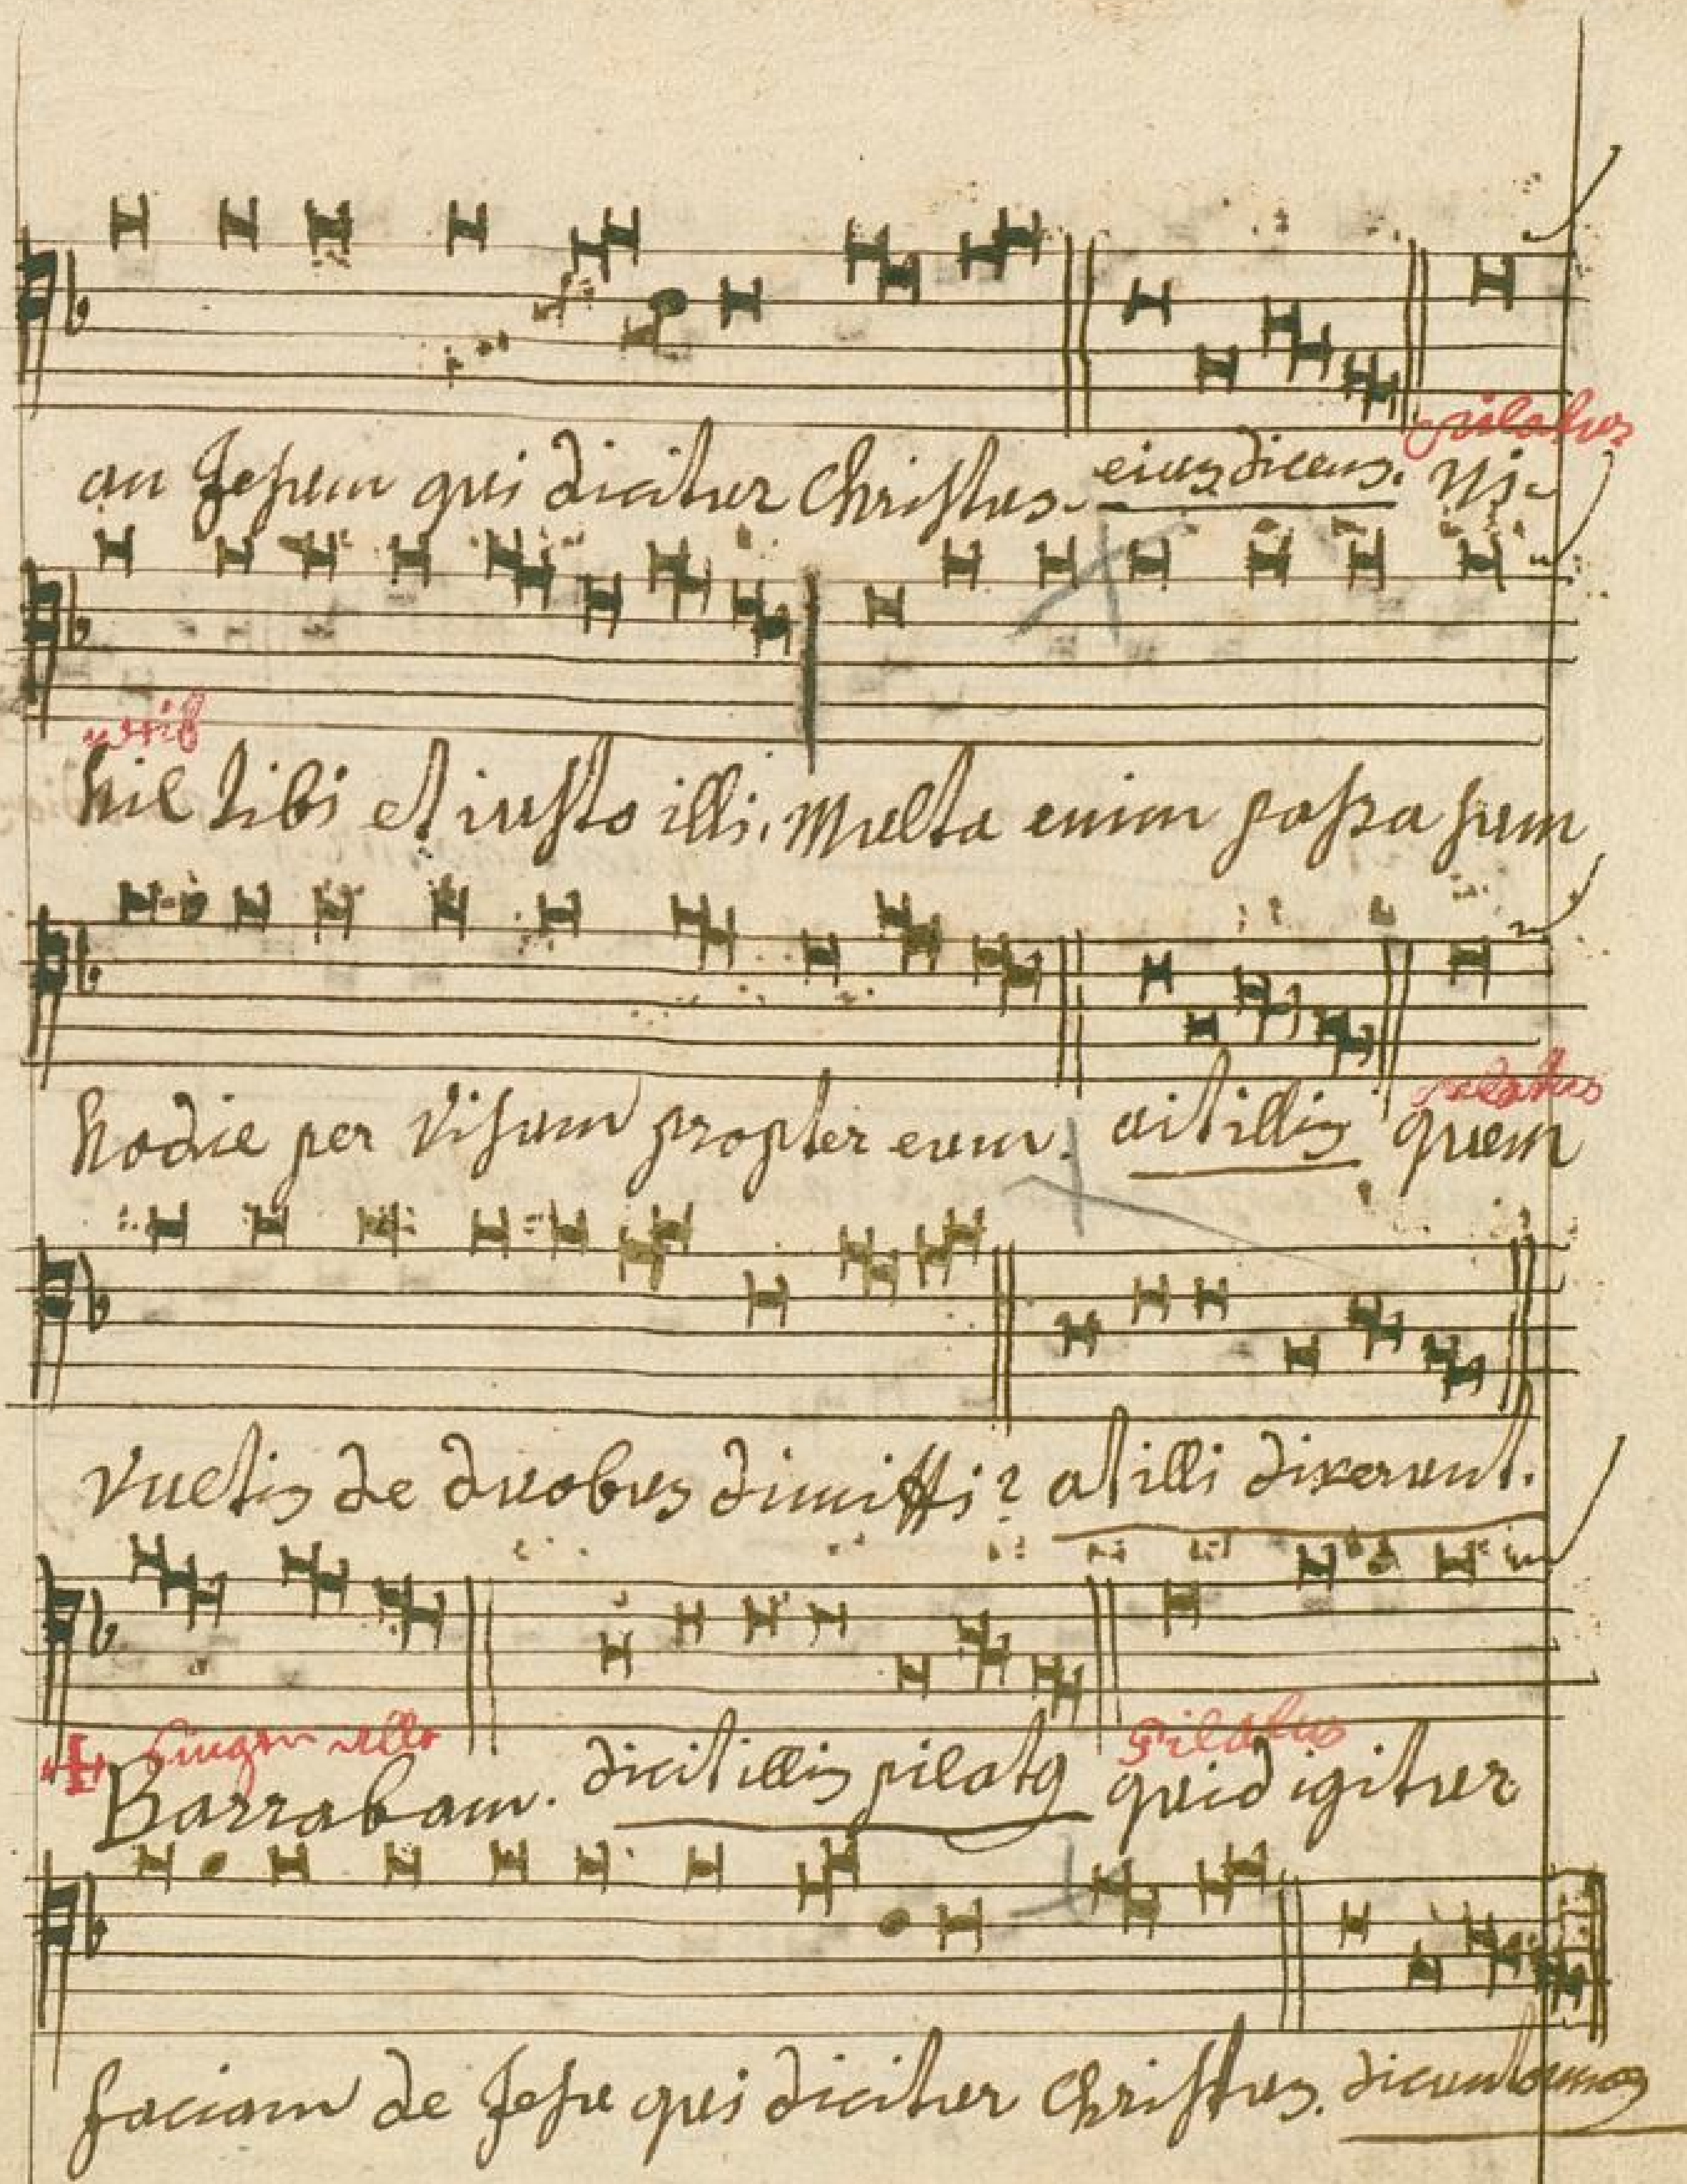 pilatus
an Jesum qui dicitur Christus. eius dicens. Ni-
hil tibi et iusto illi. Multa enim passa sum
pilatus
hodie per visum propter eum. ait illis quem
vultis de duobus dimitti? at illi dixerunt.
Pilatus
Barrabam. dicit illis pilatꝰ quid igitur
faciam de Jesu qui dicitur Christus. dicunt omnes